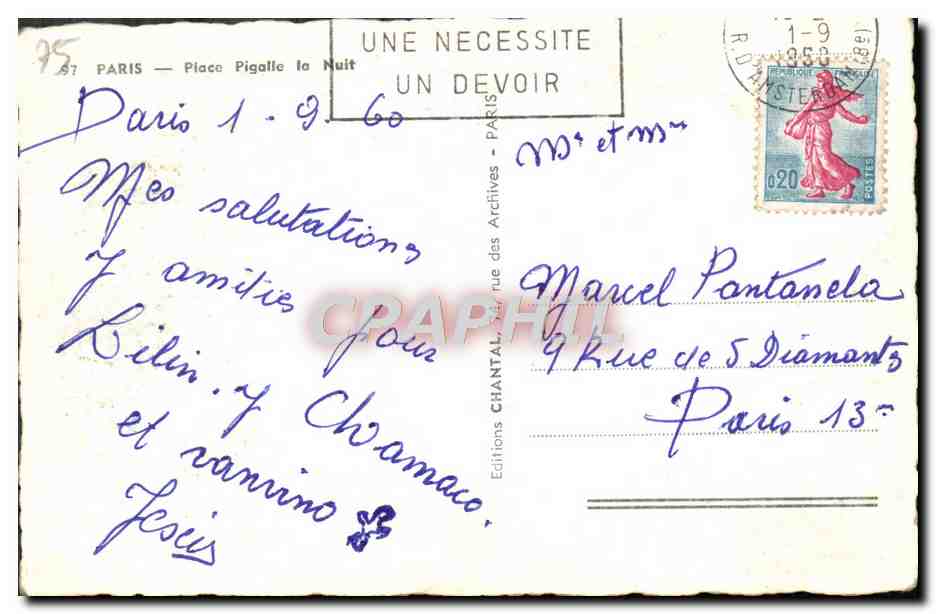 75
97 PARIS — Place Pigalle la Nuit
UNE NECESSITE
UN DEVOIR
1-9
1960
R. D'AMSTERDAM (8e)
REPUBLIQUE FRANÇAISE
0,20
POSTES
Paris 1.9.60
Mes salutations
y amities pour
Lilin. y Chamaco.
et vanvino
Jesús
Editions CHANTAL, 74, rue des Archives - PARIS
Mr et Mme
Marcel Pantanela
9 Rue de 5 Diamants
Paris 13me
CPAPHIL